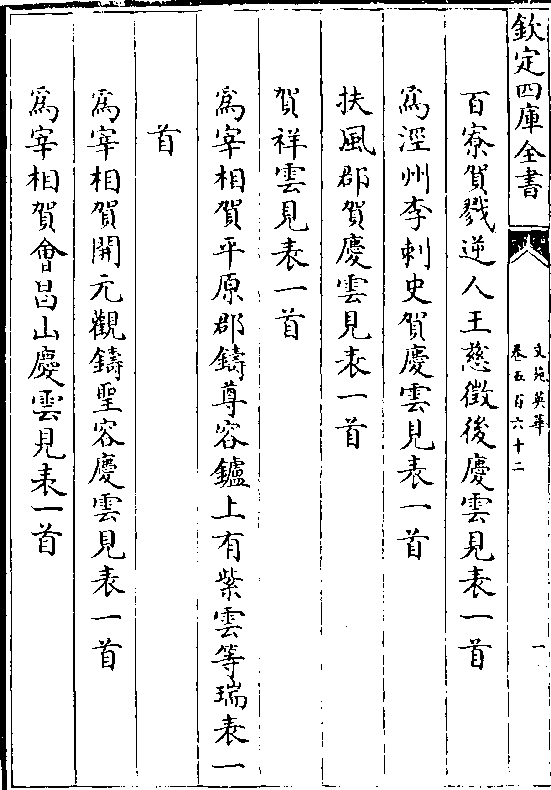 欽定四庫全書
文苑英華
卷五百六十二
一
百寮賀戮逆人王慈徴後慶雲見表一首
為涇州李刺史賀慶雲見表一首
扶風郡賀慶雲見表一首
賀祥雲見表一首
為宰相賀平原郡鑄尊容鑪上有紫雲等瑞表一
首
為宰相賀開元觀鑄聖容慶雲見表一首
為宰相賀會昌山慶雲見表一首